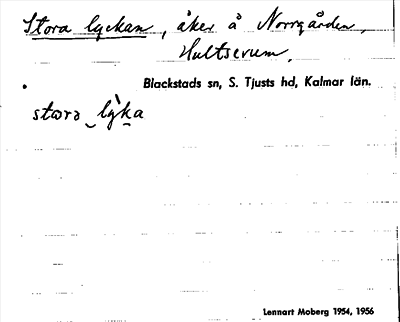 Stora lyckan, åker å Norrgården,
Hultserum.
Blackstads sn, S. Tjusts hd, Kalmar län.
stωrə lỳka
Lennart Moberg 1954, 1956